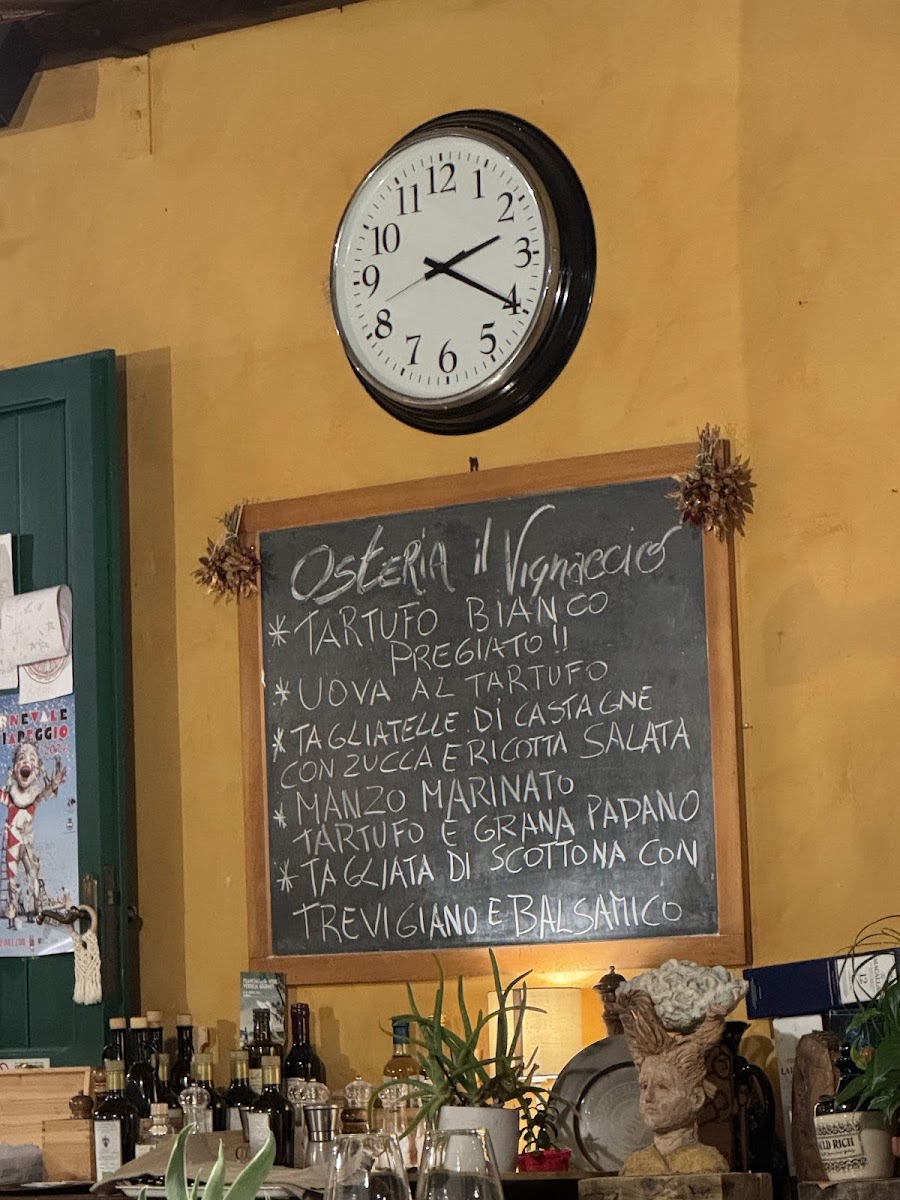 12
1
2
3
4
5
6
7
8
9
10
11
Osteria il Vignaccio
* TARTUFO BIANCO
PREGIATO!!
* UOVA AL TARTUFO
* TAGLIATELLE DI CASTAGNE
CON ZUCCA E RICOTTA SALATA
* MANZO MARINATO
TARTUFO E GRANA PADANO
* TAGLIATA DI SCOTTONA CON
TREVIGIANO E BALSAMICO
RNEVALE
IAREGGIO
12
LD RICH